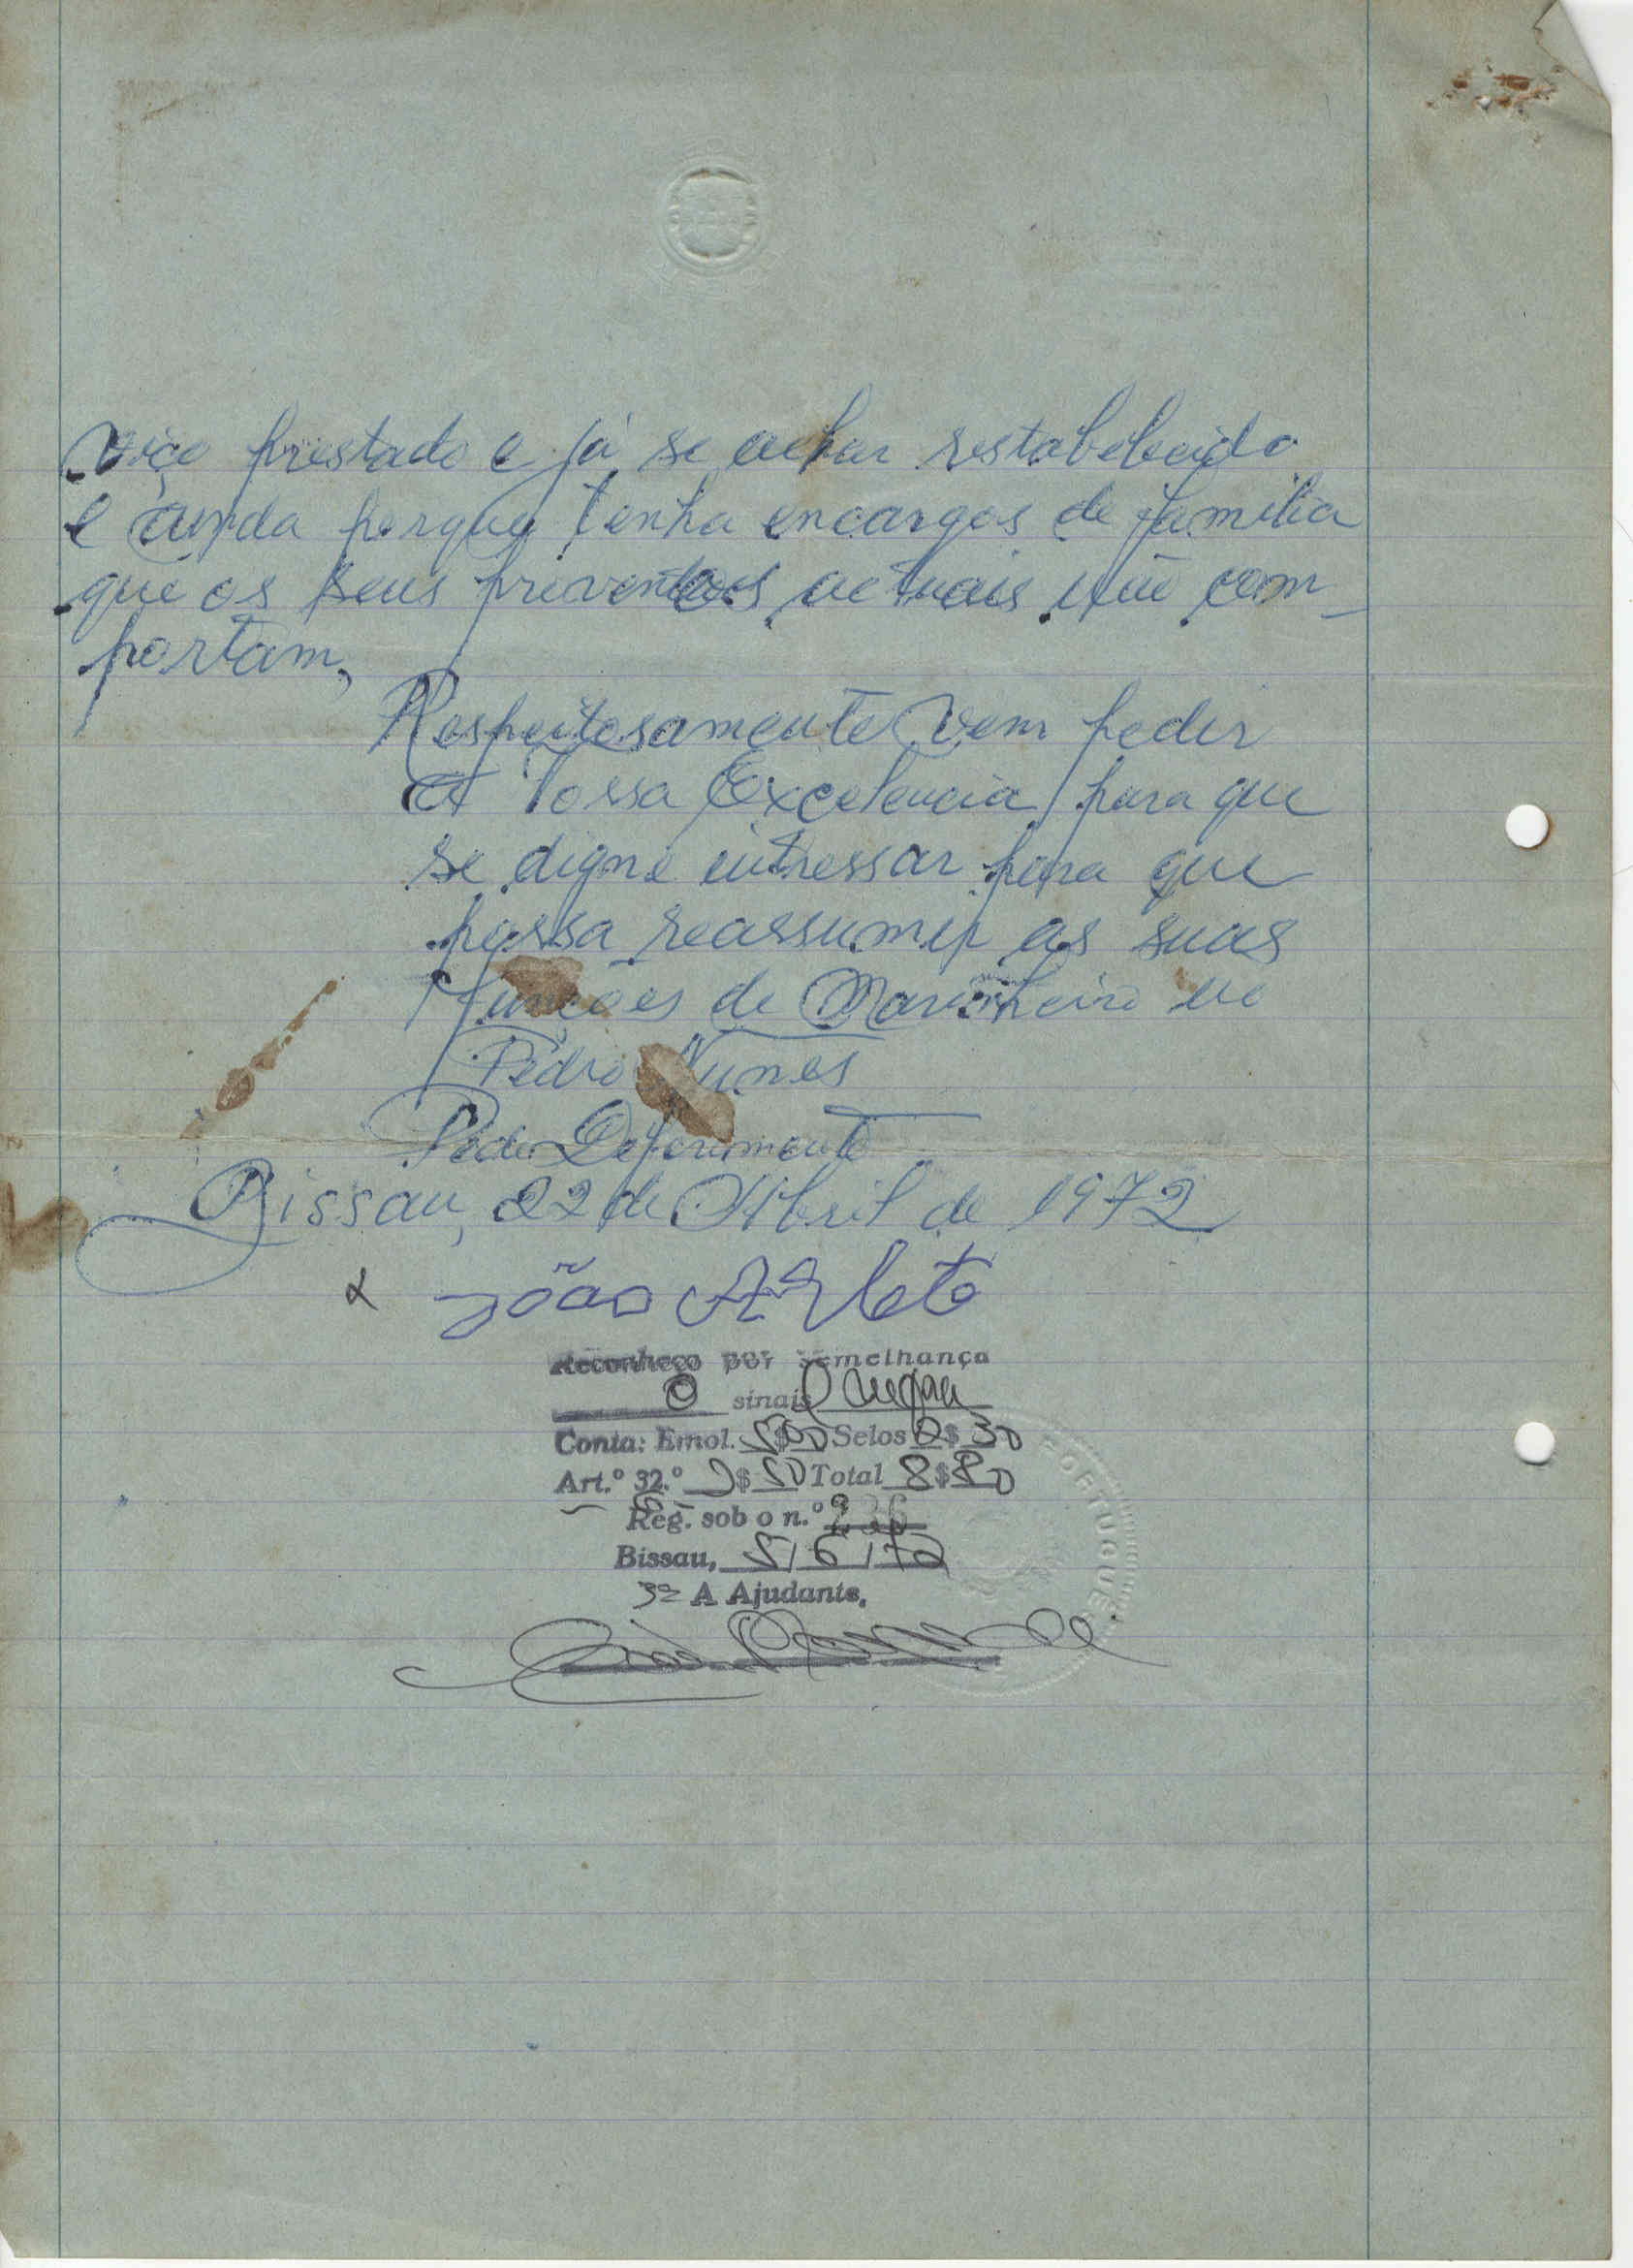 viço prestado e já se achar restabelecido
e ainda porque tenha encargos de familia
que os seus proventos actuais não com-
portam,
Respeitosamente vem pedir
a Vossa Excelencia para que
se digne intressar para que
possa reassumir as suas
funções de Marinheiro no
Pedro Nunes
Pede Deferimento
Bissau, 22 de Abril de 1972
João
Reconheço por semelhança
o sinais
Conta: Emol. 5$00 Selos 2$30
Art.º 32.º $50 Total 8$80
Reg. sob o n.º 236
Bissau, 5/6/72
A Ajudante,